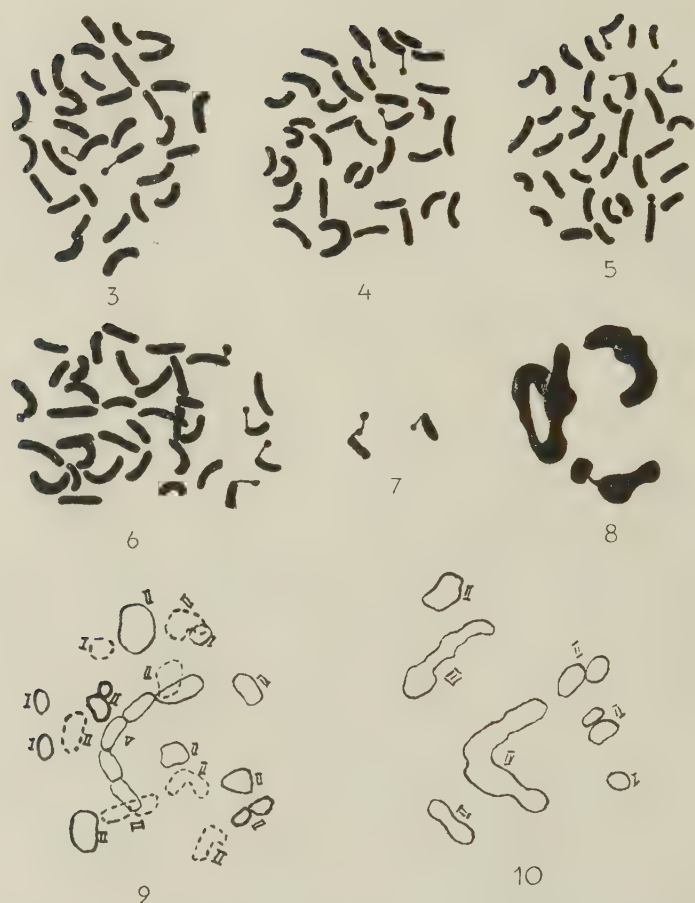 3
4
5
6
7
8
II
II
I
I
II
II
I
II
II
I
V
I
II
II
II
III
II
9
II
III
II
II
IV
I
II
10